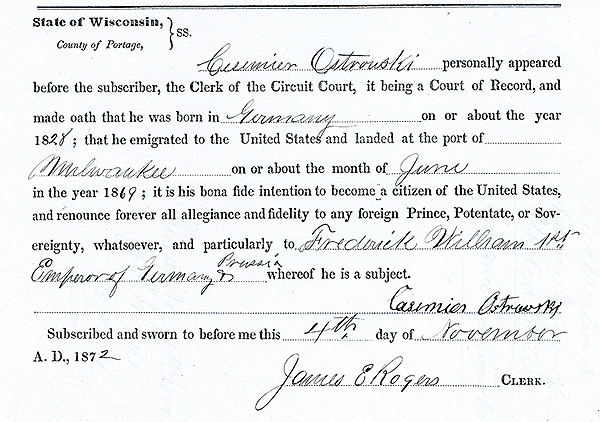 State of Wisconsin, } ss.
County of Portage,
Casimier Ostrouski personally appeared
before the subscriber, the Clerk of the Circuit Court, it being a Court of Record, and
made oath that he was born in Germany on or about the year
1828; that he emigrated to the United States and landed at the port of
Milwaukee on or about the month of June
in the year 1869; it is his bona fide intention to become a citizen of the United States,
and renounce forever all allegiance and fidelity to any foreign Prince, Potentate, or Sov-
ereignty, whatsoever, and particularly to Frederick William 1st
Emperor of Germany & Prussia whereof he is a subject.
Casimier Ostrowski
Subscribed and sworn to before me this 4th day of November
A. D., 1872
James E Rogers CLERK.